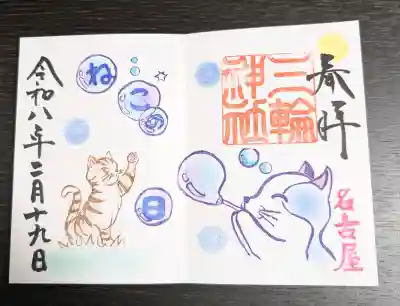 奉拝
三輪
神社
名古屋
ねこの
日
令和八年二月十九日